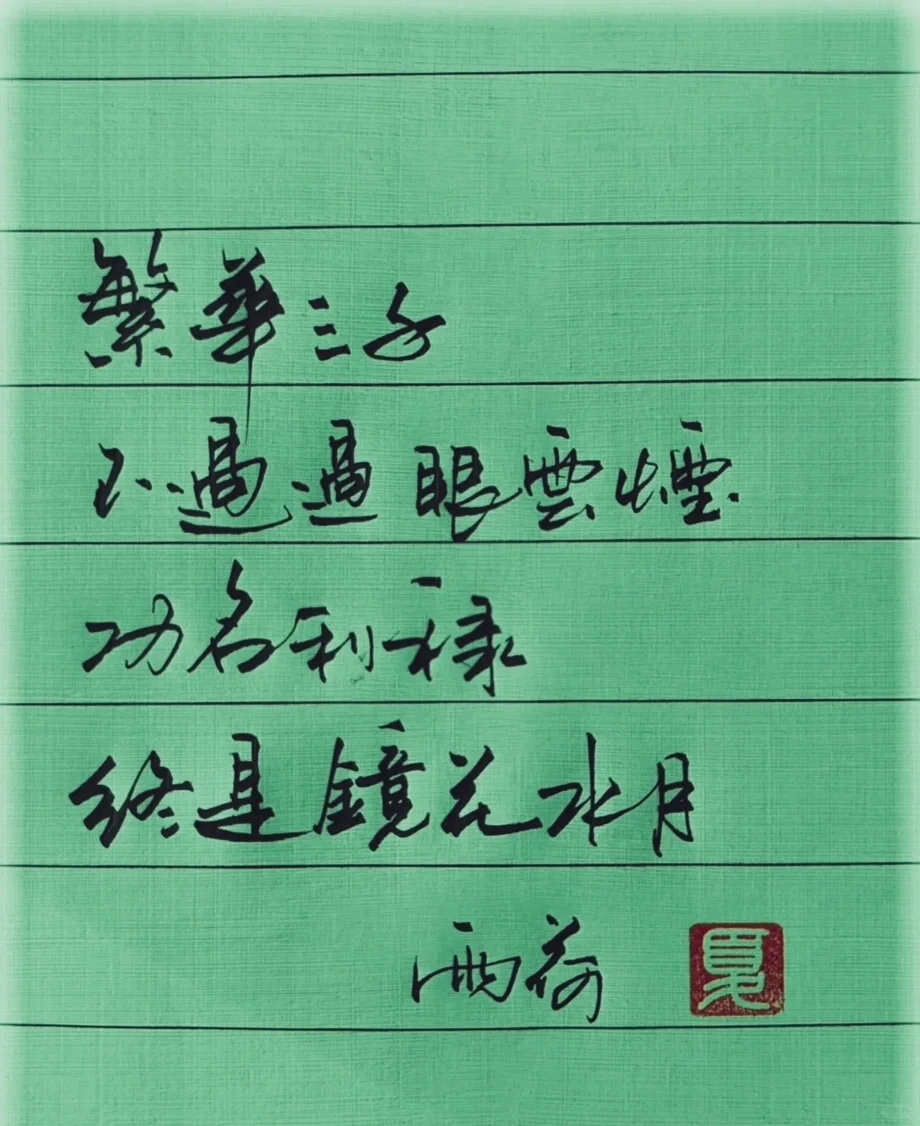 繁華三千
不過過眼雲煙
功名利祿
終是鏡花水月
雨荷
夏